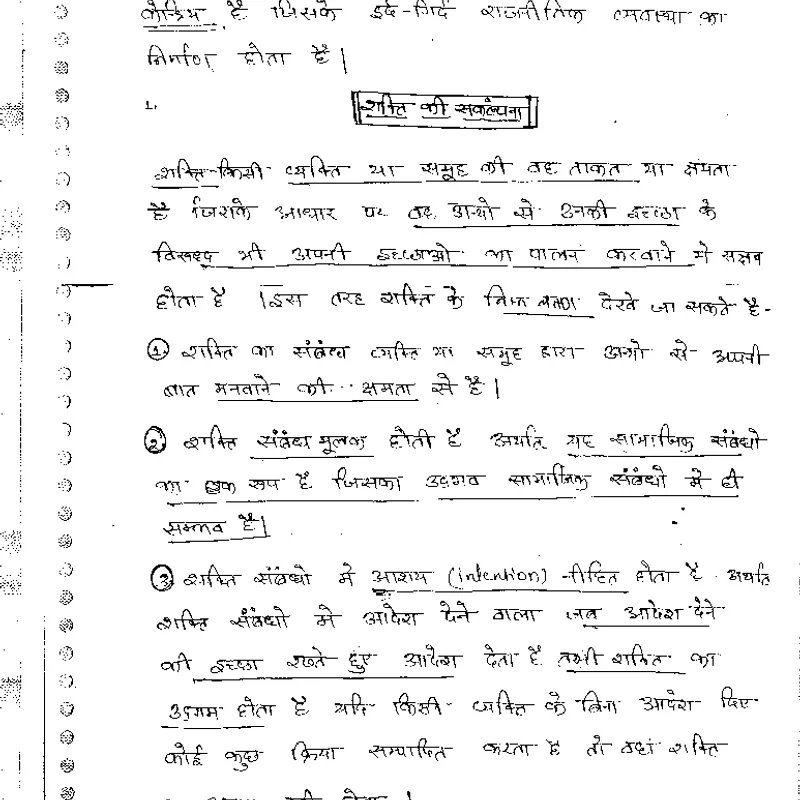 केन्द्रिय है जिसके इर्द-गिर्द राजनीतिक व्यवस्था का
निर्माण होता है।
1.
शक्ति की संकल्पना
शक्ति-किसी व्यक्ति या समूह की वह ताकत या क्षमता
है जिसके आधार पर वह अन्यो से उनकी इच्छा के
विरूद्ध भी अपनी इच्छाओ का पालन करवाने मे सक्षम
होता है। इस तरह शक्ति के निम्न लक्षण देखे जा सकते है-
1. शक्ति का संबंध व्यक्ति या समूह द्वारा अन्यो से अपनी
बात मनवाने की क्षमता से है।
2. शक्ति संबंध मूलक होती है अर्थात यह सामाजिक संबंधो
का एक रूप है जिसका उदभव सामाजिक संबंधो मे ही
सम्भव है।
3. शक्ति संबंधो मे आशय (intention) निहित होता है अर्थात
शक्ति संबंधो मे आदेश देने वाला जब आदेश देने
की इच्छा रखते हुए आदेश देता है तभी शक्ति का
उदगम होता है यदि किसी व्यक्ति के बिना आदेश दिए
कोई कुछ क्रिया सम्पादित करता है तो वहां शक्ति